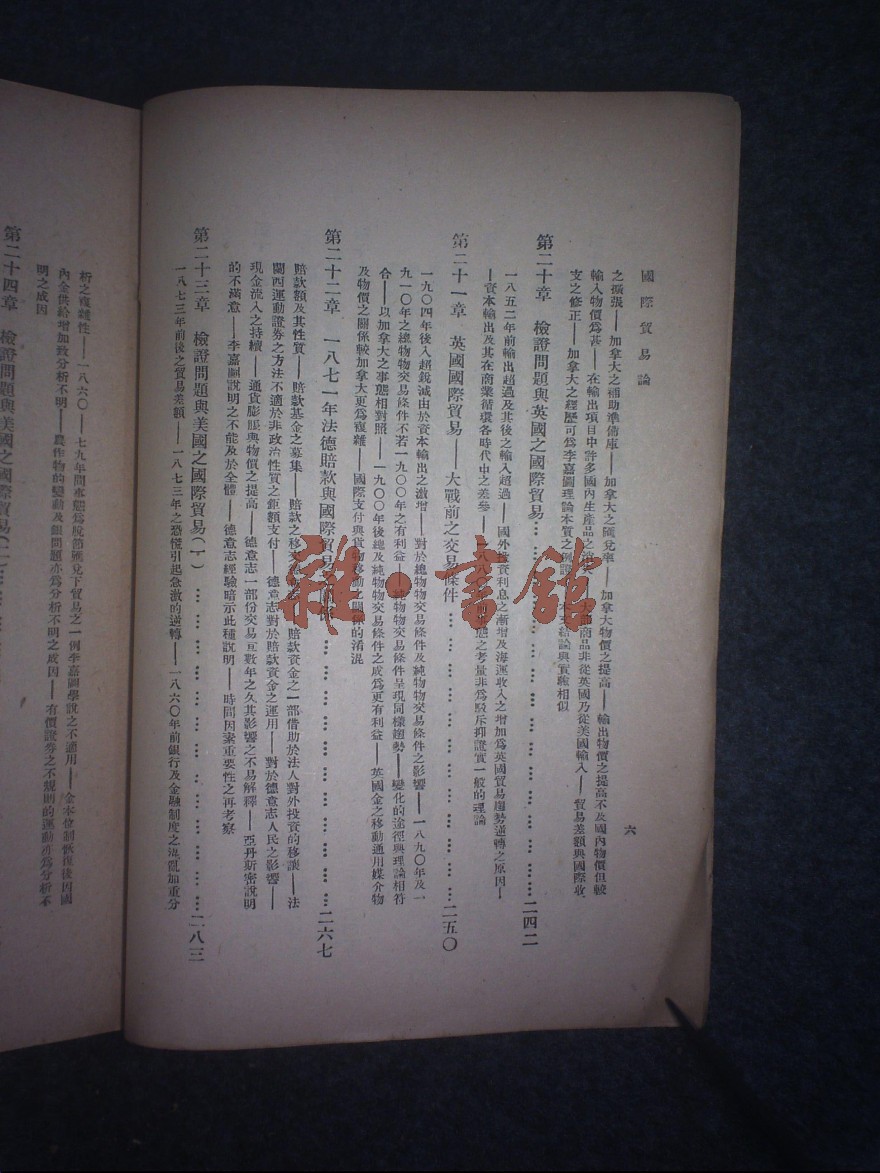 國際貿易論
六
之擴張——加拿大之補助準備庫——加拿大之匯兌率——加拿大物價之提高——輸出物價之提高不及國內物價但較
輸入物價爲甚——在輸出項目中許多國內生產品之 商品非從英國乃從美國輸入——貿易差額與國際收
支之修正——加拿大之經歷可爲李嘉圖理論本質之例證 結論與實驗相似
第二十章 檢證問題與英國之國際貿易……二四二
一八五二年前輸出超過及其後之輸入超過——國外投資利息之漸增及海運收入之增加爲英國貿易趨勢逆轉之原因—
—資本輸出及其在商業循環各時代中之差參——一八八〇年前 態之考量非爲駁斥抑證實一般的理論
第二十一章 英國國際貿易——大戰前之交易條件……二五〇
一九〇四年後入超銳減由於資本輸出之激增——對於總物物交易條件及純物物交易條件之影響——一八九〇年及一
九一〇年之總物物交易條件不若一九〇〇年之有利益—— 純物物交易條件呈現同樣趨勢——變化的途徑與理論相符
合——以加拿大之事態相對照——一九〇〇年後總及純物物交易條件之成爲更有利益——英國金之移動通用媒介物
及物價之關係較加拿大更爲複雜——國際支付與貨物移動之關係的淆混
第二十二章 一八七一年法德賠款與國際貿易……二六七
賠款額及其性質——賠款基金之募集——賠款之移交 賠款資金之一部借助於法人對外投資的移讓——法
閣西運動證券之方法不適於非政治性質之鉅額支付——德意志對於賠款資金之運用——對於德意志人民之影響——
現金流入之持續——通貨膨脹與物價之提高——德意志一部份交易亘數年之久其影響之不易解釋——亞丹斯密說明
的不滿意——李嘉圖說明之不能及於全體——德意志經驗暗示此種說明——時間因素重要性之再考察
第二十三章 檢證問題與美國之國際貿易(一)……二八三
一八七三年前後之貿易差額——一八七三年之恐慌引起急激的逆轉——一八六〇年前銀行及金融制度之混亂加重分
析之複雜性——一八六〇—七九年間事態爲脫節匯兌下貿易之一例李嘉圖學說之不適用——金本位制恢復後因國
內金供給增加致分析不明——農作物的變動及銀問題亦爲分析不明之成因——有價證券之不規則的運動亦爲分析不
明之成因
第二十四章 檢證問題與美國之國際貿易(二)……
雜·書館